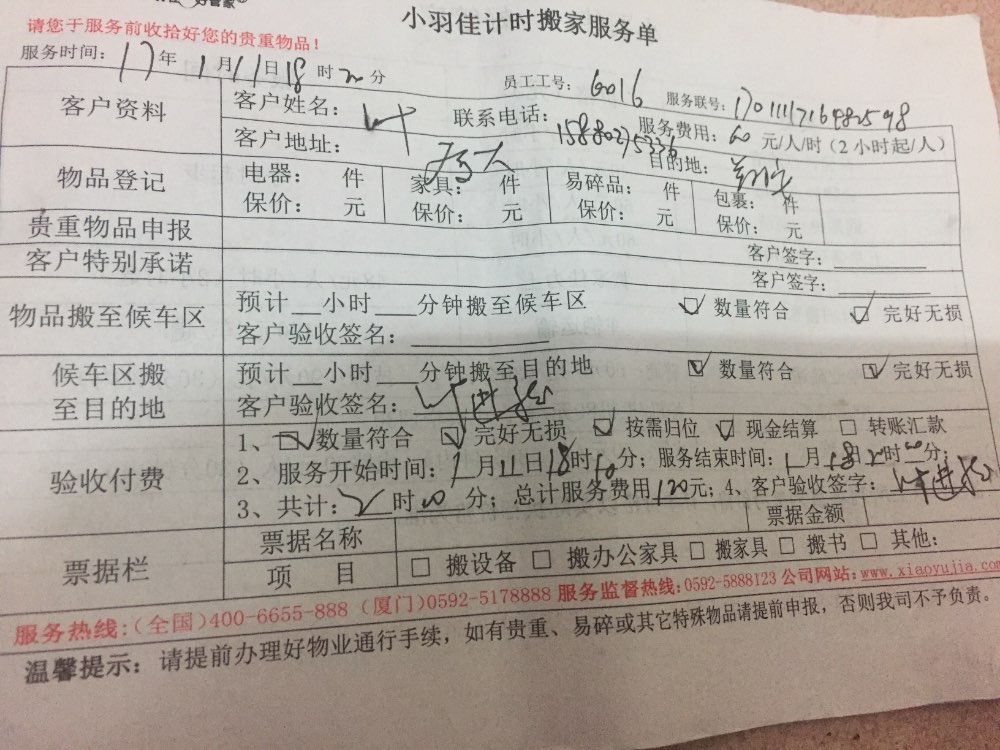 好管家
小羽佳计时搬家服务单
请您于服务前收拾好您的贵重物品！
服务时间：17年1月11日18时20分 员工工号：6016 服务联号：
客户资料 客户姓名：叶 联系电话：15880275336 服务费用：60元/人/时（2小时起/人）
客户地址： 目的地：
物品登记 电器： 件 家具： 件 易碎品： 件 包裹： 件
保价： 元 保价： 元 保价： 元 保价： 元
贵重物品申报 客户签字：
客户特别承诺 客户签字：
物品搬至候车区 预计__小时___分钟搬至候车区 ☑ 数量符合 ☑ 完好无损
客户验收签名：
候车区搬至目的地 预计__小时___分钟搬至目的地 ☑ 数量符合 ☑ 完好无损
客户验收签名：叶进
验收付费 1、☑数量符合 ☑ 完好无损 ☑ 按需归位 ☑ 现金结算 □ 转账汇款
2、服务开始时间：1月11日18时 分；服务结束时间：1月 日 时 分；
3、共计：2时00分；总计服务费用120元；4、客户验收签字：叶进
票据栏 票据名称 票据金额
项 目 □ 搬设备 □ 搬办公家具 □ 搬家具 □ 搬书 □ 其他：
服务热线：（全国）400-6655-888（厦门）0592-5178888 服务监督热线：0592-5888123 公司网站：www.xiaoyujia.com
温馨提示：请提前办理好物业通行手续，如有贵重、易碎或其它特殊物品请提前申报，否则我司不予负责。